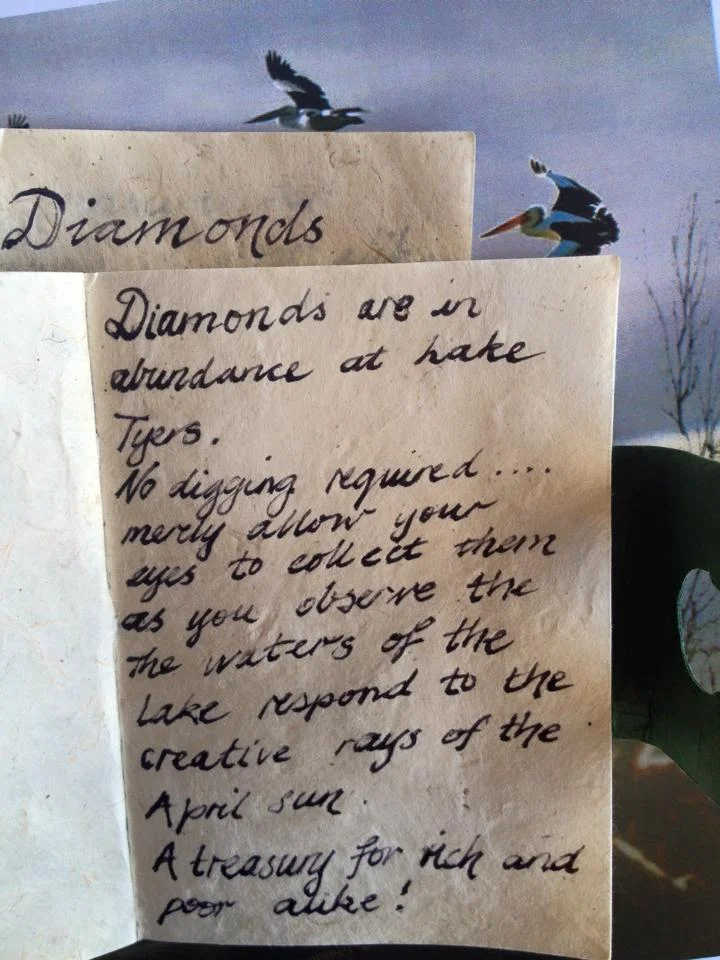 Diamonds
Diamonds are in
abundance at Lake
Tyers.
No digging required....
merely allow your
eyes to collect them
as you observe the
the waters of the
Lake respond to the
creative rays of the
April sun.
A treasury for rich and
poor alike!